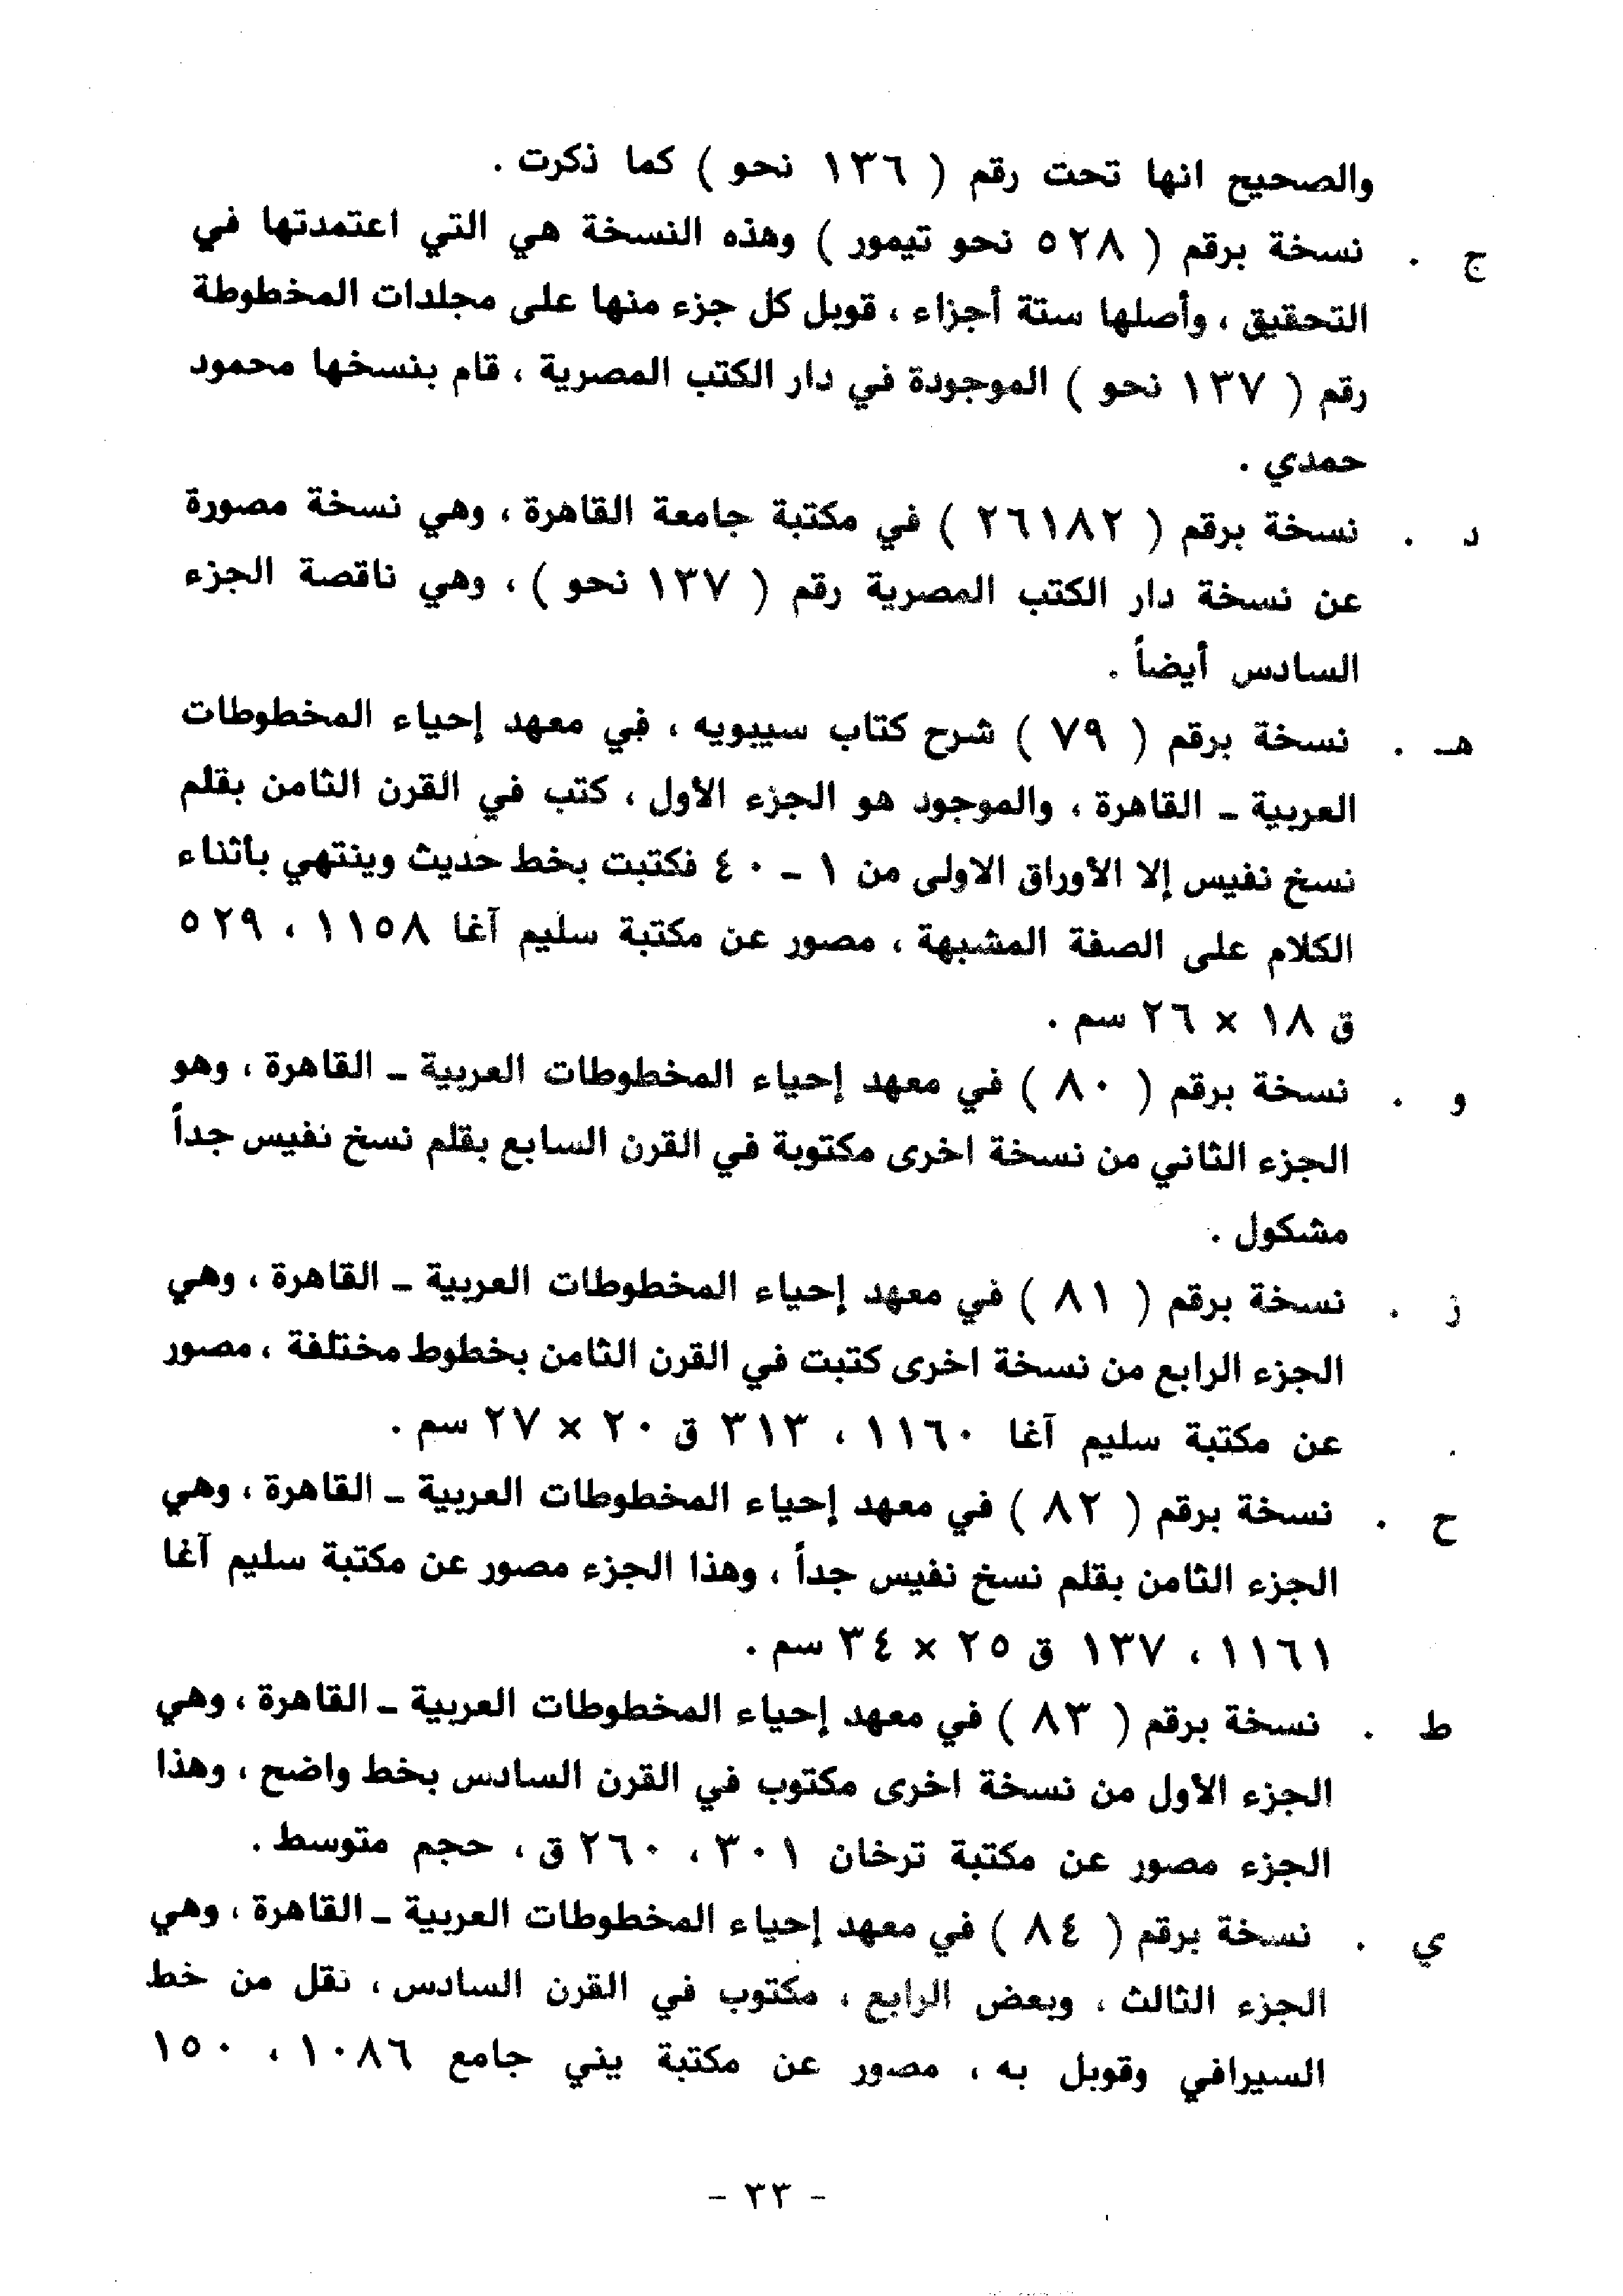 والصحيح انها تحت رقم ( ١٣٦ نحو ) كما ذكرت .
ج . نسخة برقم ( ٥٢٨ نحو تيمور ) وهذه النسخة هي التي اعتمدتها في
التحقيق ، وأصلها ستة أجزاء ، قوبل كل جزء منها على مجلدات المخطوطة
رقم ( ١٣٧ نحو ) الموجودة في دار الكتب المصرية ، قام بنسخها محمود
حمدي .
د . نسخة برقم ( ٢٦١٨٢ ) في مكتبة جامعة القاهرة ، وهي نسخة مصورة
عن نسخة دار الكتب المصرية رقم ( ١٣٧ نحو ) ، وهي ناقصة الجزء
السادس أيضاً .
هـ . نسخة برقم ( ٧٩ ) شرح كتاب سيبويه ، في معهد إحياء المخطوطات
العربية ـ القاهرة ، والموجود هو الجزء الأول ، كتب في القرن الثامن بقلم
نسخ نفيس إلا الأوراق الاولى من ١ ـ ٤٠ فكتبت بخط حديث وينتهي بأثناء
الكلام على الصفة المشبهة ، مصور عن مكتبة سليم آغا ١١٥٨ ، ٥٢٩
ق ١٨ × ٢٦ سم .
و . نسخة برقم ( ٨٠ ) في معهد إحياء المخطوطات العربية ـ القاهرة ، وهو
الجزء الثاني من نسخة اخرى مكتوبة في القرن السابع بقلم نسخ نفيس جداً
مشكول .
ز . نسخة برقم ( ٨١ ) في معهد إحياء المخطوطات العربية ـ القاهرة ، وهي
الجزء الرابع من نسخة اخرى كتبت في القرن الثامن بخطوط مختلفة ، مصور
عن مكتبة سليم آغا ١١٦٠ ، ٣١٣ ق ٢٠ × ٢٧ سم .
ح . نسخة برقم ( ٨٢ ) في معهد إحياء المخطوطات العربية ـ القاهرة ، وهي
الجزء الثامن بقلم نسخ نفيس جداً ، وهذا الجزء مصور عن مكتبة سليم آغا
١١٦١ ، ١٣٧ ق ٢٥ × ٣٤ سم .
ط . نسخة برقم ( ٨٣ ) في معهد إحياء المخطوطات العربية ـ القاهرة ، وهي
الجزء الأول من نسخة اخرى مكتوب في القرن السادس بخط واضح ، وهذا
الجزء مصور عن مكتبة ترخان ٣٠١ ، ٢٦٠ ق ، حجم متوسط .
ي . نسخة برقم ( ٨٤ ) في معهد إحياء المخطوطات العربية ـ القاهرة ، وهي
الجزء الثالث ، وبعض الرابع ، مكتوب في القرن السادس ، نقل من خط
السيرافي وقوبل به ، مصور عن مكتبة يني جامع ١٠٨٦ ، ١٥٠
- ٣٣ -